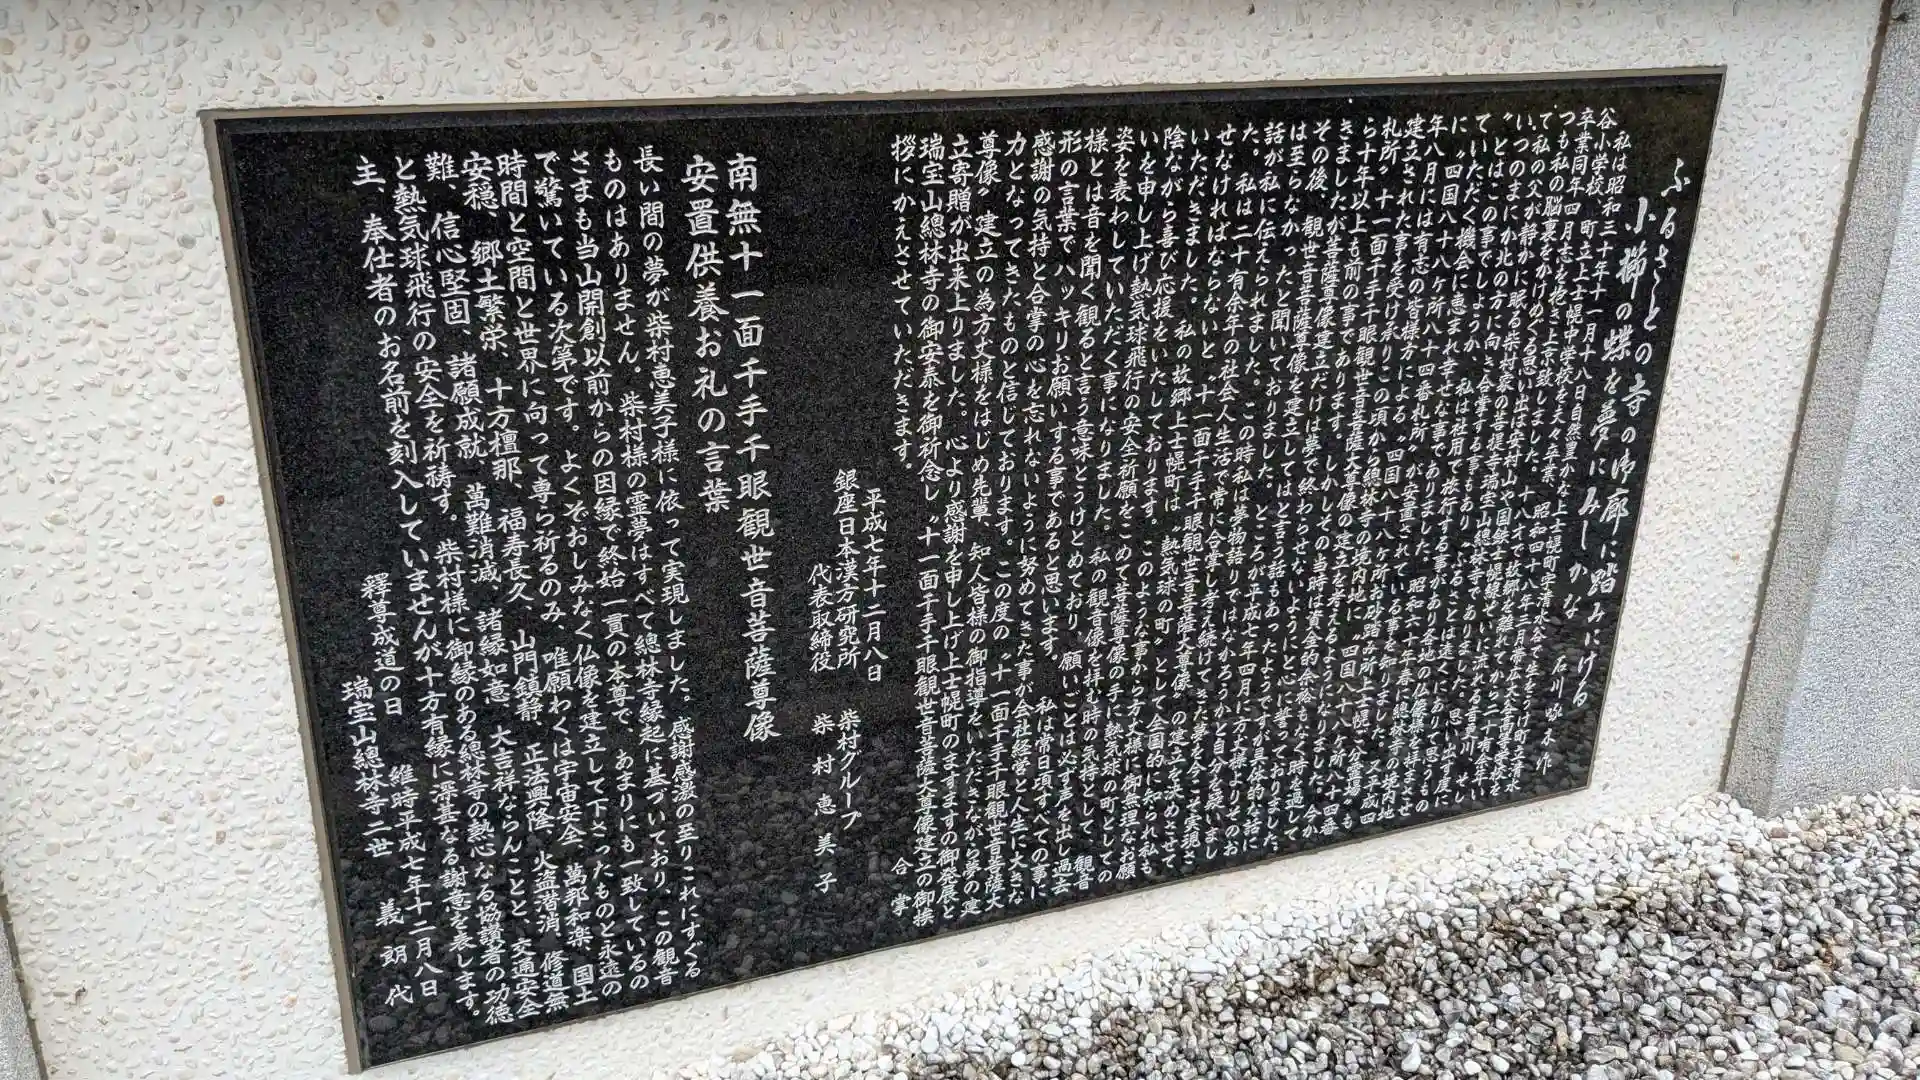 ふるさとの寺の御廊に踏みにける
小獅の蝶を夢にみしかな
石川啄木作
私は昭和三十年十一月十八日自然豊かな上士幌町字清水谷で生をうけ町立清水
谷小学校、町立上士幌中学校を夫々卒業、昭和四十八年三月帯広大谷高等学校を
卒業同年四月志を抱き上京致しました。十八才で故郷を離れてから二十有余年い
つも私の脳裏をかけめぐる思い出は安村山や国鉄士幌線ぞいに流れる音更川、そし
て私の父が静かに眠る柴村家の菩提寺瑞宝山總林寺でありました。思い出す度に
いつのまにか北の方に向き合掌する事もあり〝ふるさとは遠くにありて思うもの
〟とはこの事でしようか、私は社用で旅行する事があり各地の仏像様を拝まさせ
ていただく機会に恵まれ幸せな事でありました。昭和六十年春に總林寺の境内地
に〝四国八十八ケ所八十四番札所〟が安置されている事を知りました。又平成四
年八月には有志の皆様方による〝四国八十八ケ所お砂踏み所上士幌、分霊場〟も
建立された事を受け承りこの頃から總林寺の境内地に〝四国八十八ケ所八十四番
札所〟十一面千手千眼観世音菩薩大尊像の建立を考えるようになりました。今か
ら十年以上も前の事であります。しかしその当時は資金的余裕もなく時を過して
きましたが菩薩尊像建立だけは夢で終わらせないようにと心に誓っておりました。
その後、観世音菩薩尊像を建立してはと言う話もあったようですが具体的な話に
は至らなかったと聞いておりました。ところが平成七年四月に方丈様よりそのお
話が私に伝えられました。この時私は夢物語りではなかろうかと自分を疑いまし
た。私は二十有余年の社会人生活で常に合掌し考え続けてきた夢を今こそ実現さ
せなければならないと、十一面千手千眼観世音菩薩大尊像〟の建立を決めさせて
いただきました。私の故郷上士幌町は〝熱気球の町〟として全国的に知られ私も
陰ながら喜び応援をいたしております。このような事から方丈様に御無理なお願
いを申し上げ熱気球飛行の安全祈願をこめて菩薩尊像の手に熱気球の町としての
姿を表わしていただく事になりました。私の観音像を拝む時の気持として、観音
様とは音を聞く観ると言う意味とうけとめており、願いごとは必ず声を出し過去
形の言葉でハッキリお願いする事であると思います。私は常日頃すべての事に
感謝の気持と合掌の心を忘れないように努めてきた事が会社経営と人生に大きな
力となってきたものと信じております。この度の〝十一面千手千眼観世音菩薩大
尊像〟建立の為方丈様をはじめ先輩、知人皆様の御指導をいただきながら夢の建
立寄贈が出来上りました。心より感謝を申し上げ上士幌町のますますの御発展と
瑞宝山總林寺の御安泰を御祈念し〝十一面千手千眼観世音菩薩大尊像建立の御挨
拶にかえさせていただきます。合掌
平成七年十二月八日
銀座日本漢方研究所 柴村グループ
代表取締役 柴村恵美子
南無十一面千手千眼観世音菩薩尊像
安置供養お礼の言葉
長い間の夢が柴村恵美子様に依って実現しました。感謝感激の至りこれにすぐる
ものはありません。柴村様の霊夢はすべて總林寺縁起に基づいており、この観音
さまも当山開創以前からの因縁で終始一貫の本尊で、あまりにも一致しているの
で驚いている次第です。よくぞおしみなく仏像を建立して下さったものと永遠の
時間と空間と世界に向って専ら祈るのみ、唯願わくは宇宙安全、萬邦和楽、国土
安穏、郷土繁栄、十方檀那、福寿長久、山門鎮静、正法興隆、火盗潜消、修道無
難、信心堅固、諸願成就、萬難消滅、諸縁如意、大吉祥ならんことと、交通安全
と熱気球飛行の安全を祈祷す。柴村様に御縁のある總林寺の熱心なる協讃者の功徳
主、奉仕者のお名前を刻入していませんが十方有縁に深甚なる謝意を表します。
釋尊成道の日 維時平成七年十二月八日
瑞宝山總林寺二世 義朗代